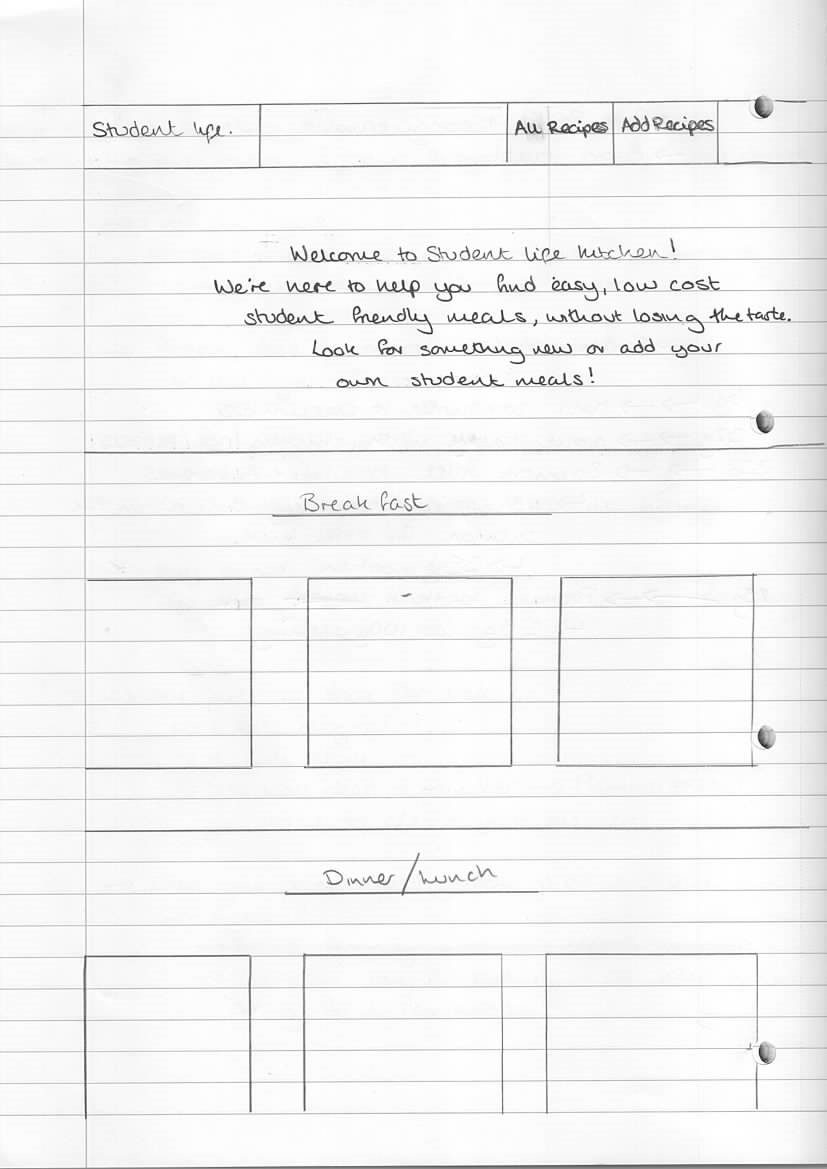 Student life.
All Recipes
Add Recipes
Welcome to Student life kitchen!
We're here to help you find easy, low cost
student friendly meals, without losing the taste.
Look for something new or add your
own student meals!
Breakfast
Dinner/Lunch